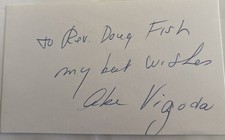 to Rev. Doug Fish
my best wishes
Abe Vigoda